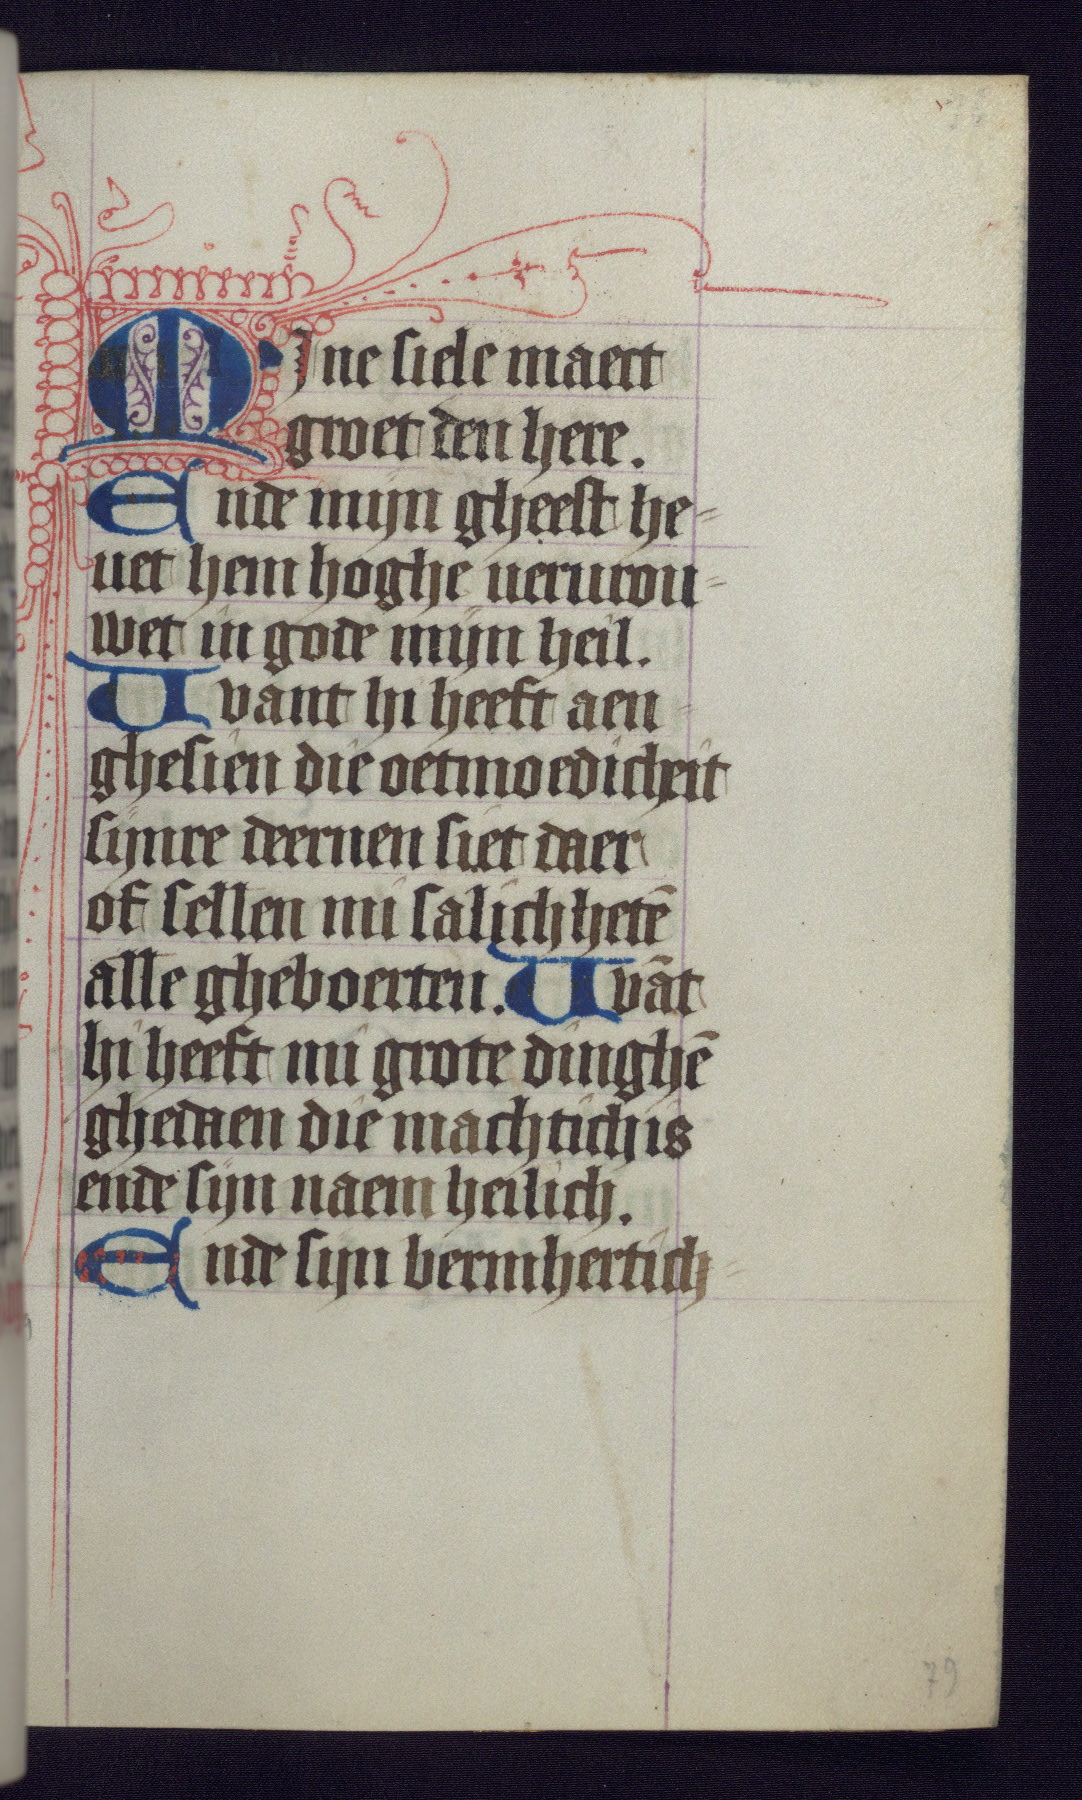 MJne siele maect
groet den here.
Ende mijn gheest he-
uet hem hoghe uerurou-
wet in gode mijn heil.
Uvant hi heeft aen-
ghesien die oetmoedicheit
sijnre deernen siet daer
of sellen mi salichhetē
alle gheboerten. Uvāt
hi heeft mi grote dinghē
ghedaen die machtich is
ende sijn naem heilich.
Ende sijn bermhertich-
79